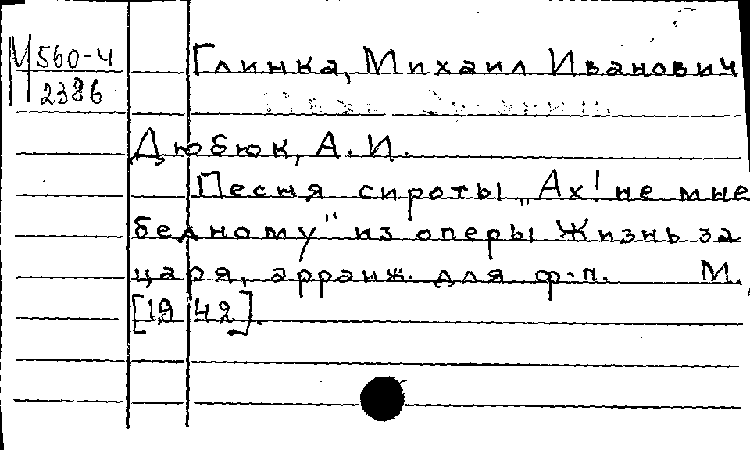 М 560-4
2386
Глинка, Михаил Иванович
Дюбюк, А. И.
Песня сироты „Ах! не мне
бедному" из оперы Жизнь за
царя, арранж. для ф-п. М.,
[1942].